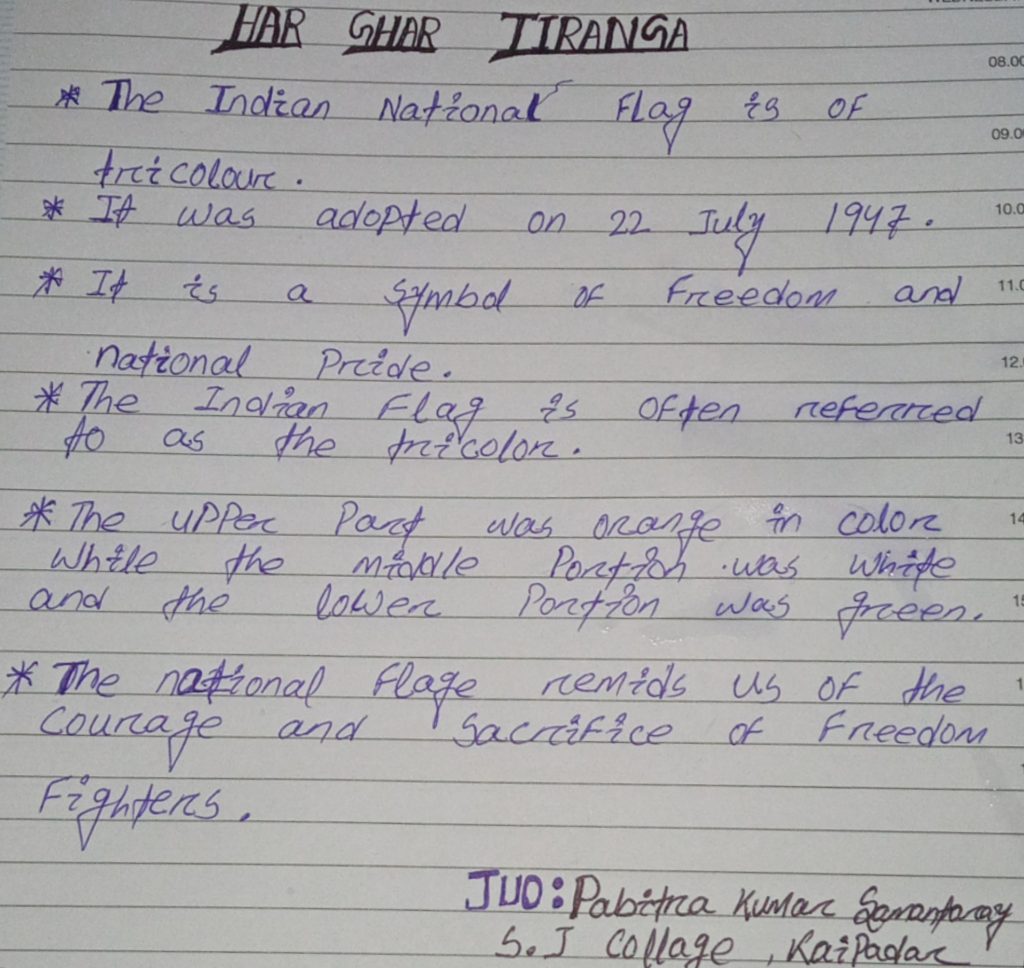 HAR GHAR TIRANGA
* The Indian National Flag is of
tricolour.
* It was adopted on 22 July 1947.
* It is a symbol of freedom and
national pride.
* The Indian Flag is often referred
to as the tricolor.
* The upper part was orange in color
while the middle portion was white
and the lower portion was green.
* The national flage remids us of the
courage and sacrifice of freedom
fighters.
JUO: Pabitra Kumar Samantaray
S.J Collage, Kaipadar
08.00
09.0
10.0
11.0
12.
13
14
15
1